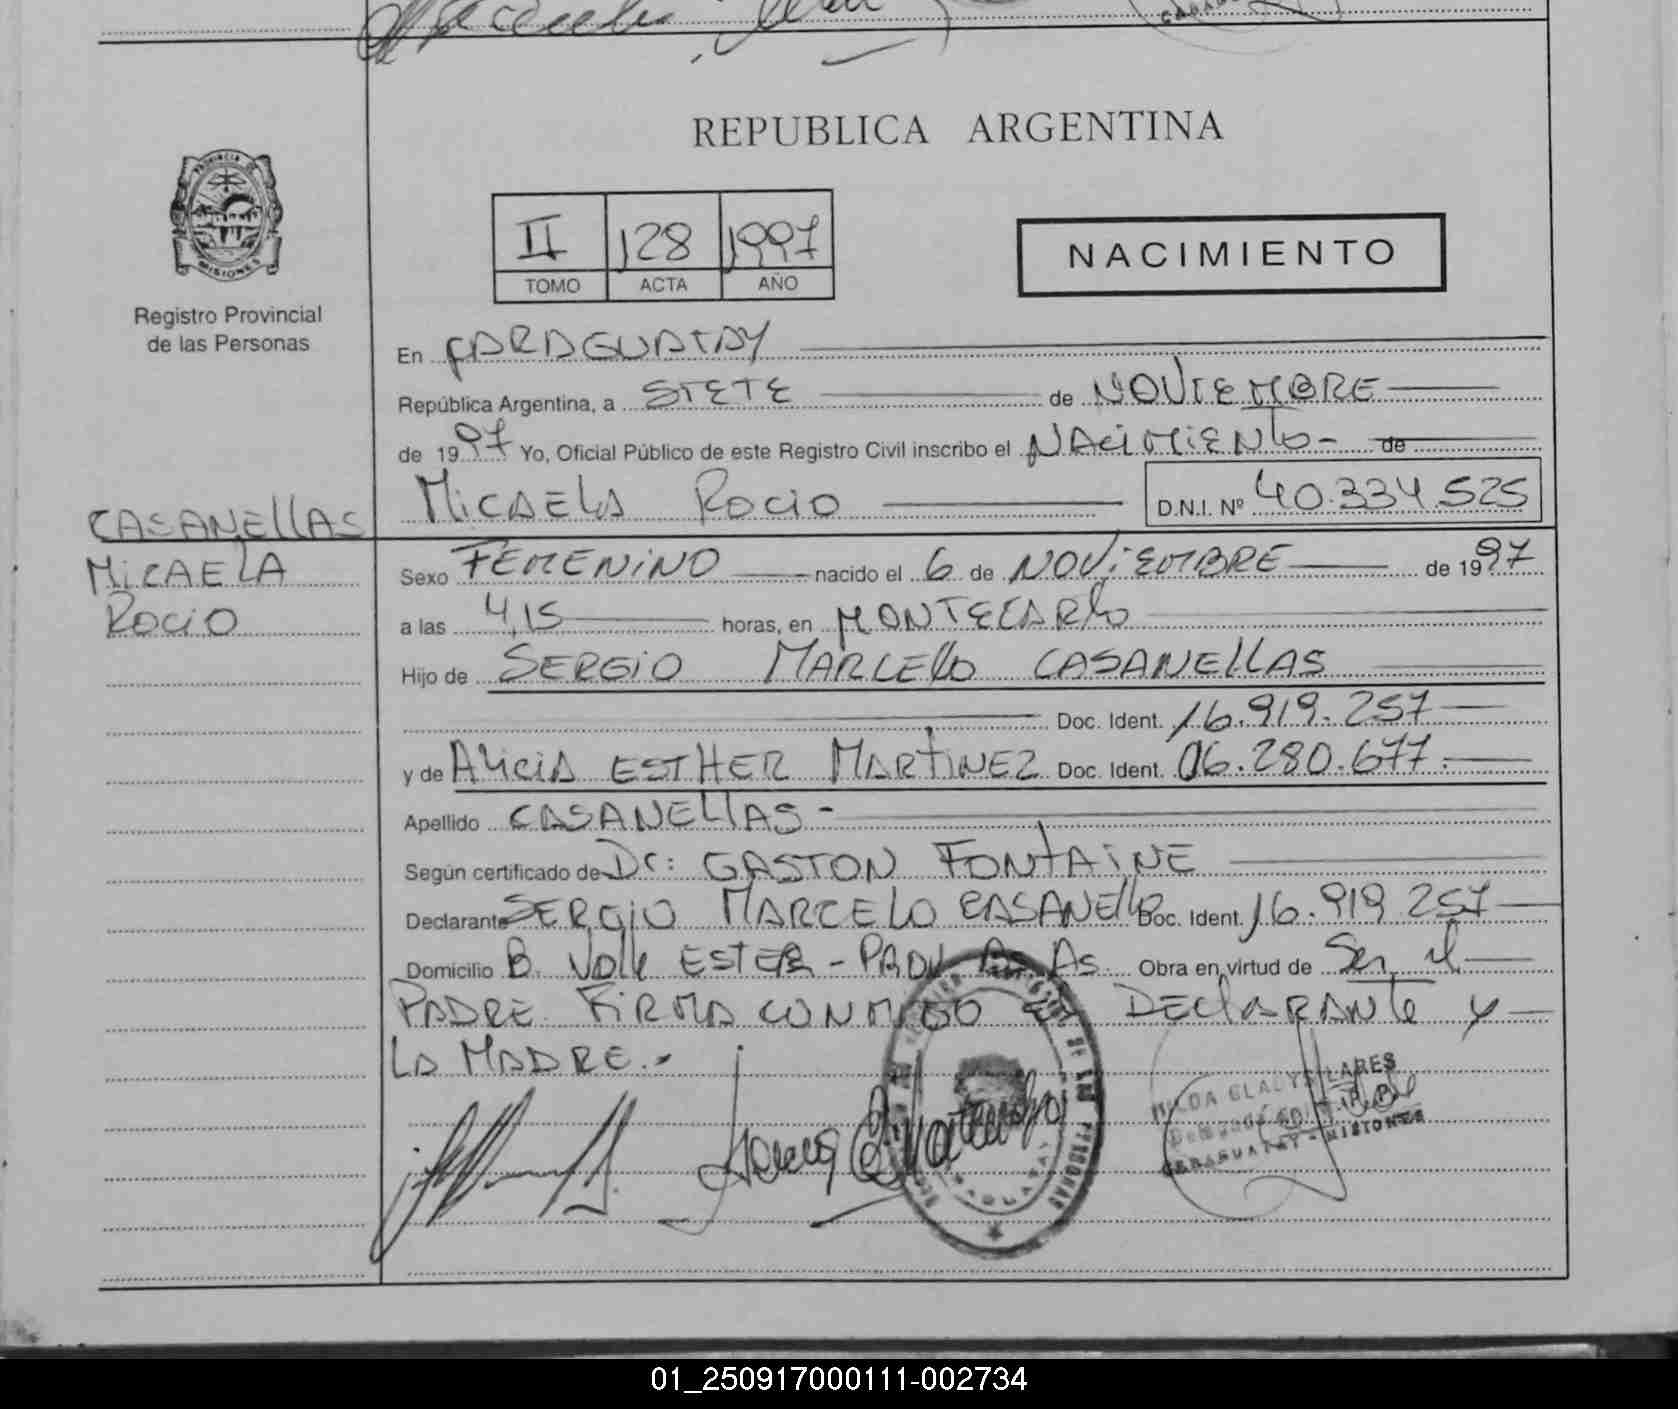 REPUBLICA ARGENTINA
PROVINCIA DE
MISIONES
Registro Provincial
de las Personas
II 128 1997
TOMO ACTA AÑO
NACIMIENTO
En CARAGUATAY
República Argentina, a SIETE de NOVIEMBRE
de 1997 Yo, Oficial Público de este Registro Civil inscribo el NACIMIENTO - de
MICAELA ROCIO D.N.I. Nº 40.334.525
CASANELLAS
MICAELA
ROCIO
Sexo FEMENINO nacido el 6 de NOVIEMBRE de 1997
a las 4,15 horas, en MONTECARLO
Hijo de SERGIO MARCELO CASANELLAS
Doc. Ident. 16.919.257
y de ALICIA ESTHER MARTINEZ Doc. Ident. 06.280.677.
Apellido CASANELLAS -
Según certificado de Dr: GASTON FONTAINE
Declarante SERGIO MARCELO CASANELLAS Doc. Ident. 16.919.257
Domicilio B. Valle ESTER - As. Obra en virtud de Ser el
PADRE FIRMA CONMIGO EL DECLARANTE y
LA MADRE.-
GLADYS LARES
CARAGUATAY - MISIONES
01_250917000111-002734